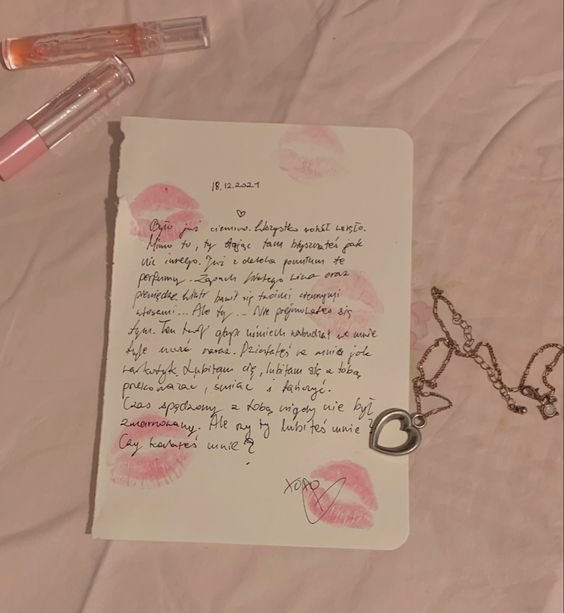 18.12.2021
Było już ciemno. Wszystko wokół
Mimo to, ty stojąc tam błyszczałeś jak
nic innego. Już z daleka poczułam te
perfumy. Zapach białego wina oraz
pieniędzy. Wiatr bawił się twoimi ciemnymi
włosami... Ale ty... Nie przejmowałeś się
tym. Ten twój głupi uśmiech wzbudzał we mnie
tyle naraz. Działałeś na mnie jak
narkotyk. Lubiłam cię, lubiłam się z tobą
przekomarzać, śmiać i tańczyć.
Czas spędzony z tobą nigdy nie był
zmarnowany. Ale czy ty lubiłeś mnie?
Czy kochałeś mnie?
XOXO